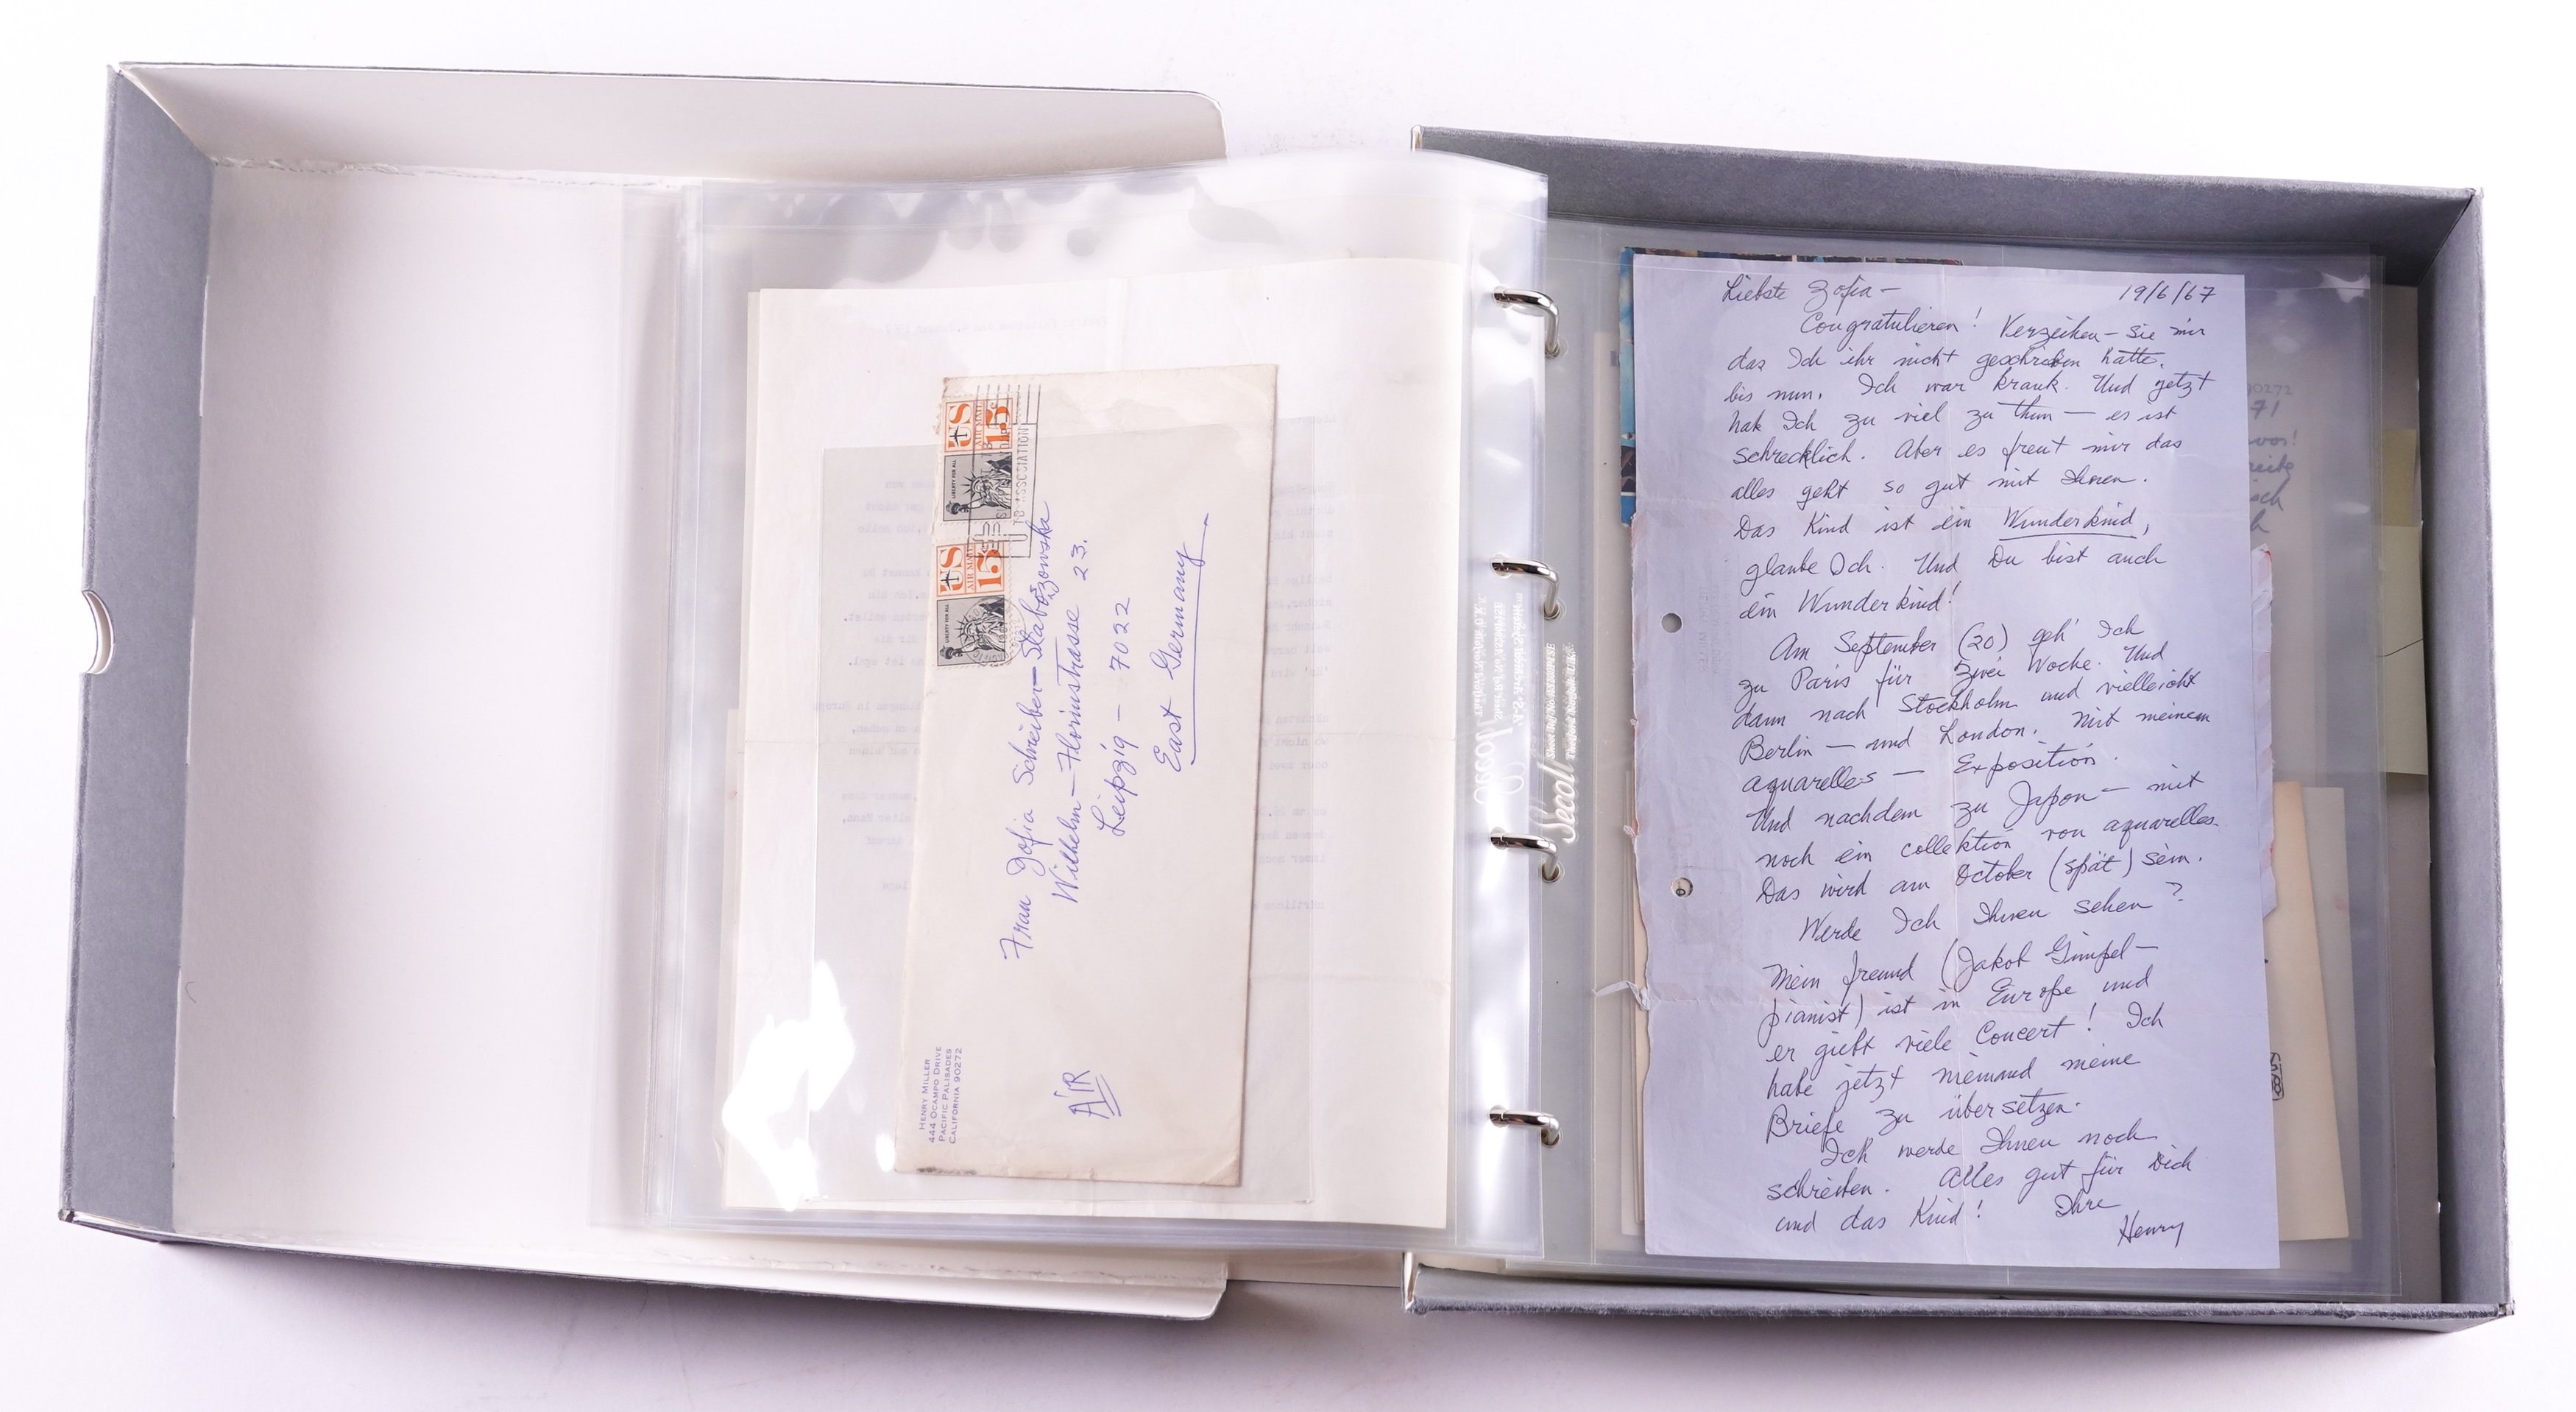 US
AIR MAIL
15c
LIBERTY FOR ALL
US
AIR MAIL
15c
LIBERTY FOR ALL
TB ASSOCIATION
Frau Zofia Schreiber-
Wilhelm-Florinstrasse 23.
Leipzig - 7022
East Germany
AIR
HENRY MILLER
444 OCAMPO DRIVE
PACIFIC PALISADES
CALIFORNIA 90272
Secol
Liebste Zofia — 19/6/67
Congratulieren! Verzeihen-Sie mir
das Ich ihr nicht geschrieben hatte.
bis nun. Ich war krank. Und jetzt
hab Ich zu viel zu thun — es ist
schrecklich. Aber es freut mir das
alles geht so gut mit Ihnen.
Das Kind ist ein Wunderkind,
glaube Ich. Und Du bist auch
ein Wunderkind!
Am September (20) geh' Ich
zu Paris für zwei Woche. Und
dann nach Stockholm und vielleicht
Berlin — und London. Mit meinem
aquarelles — Exposition.
Und nachdem zu Japon — mit
noch ein collektion von aquarelles.
Das wird am October (spät) sein.
Werde Ich Ihnen sehen?
Mein freund (Jakob Gimpel —
pianist) ist in Europe und
er giebt viele Concert! Ich
habe jetzt niemand meine
Briefe zu übersetzen.
Ich werde Ihnen noch
schreiben. Alles gut für Dich
und das Kind! Ihre
Henry
90272
71